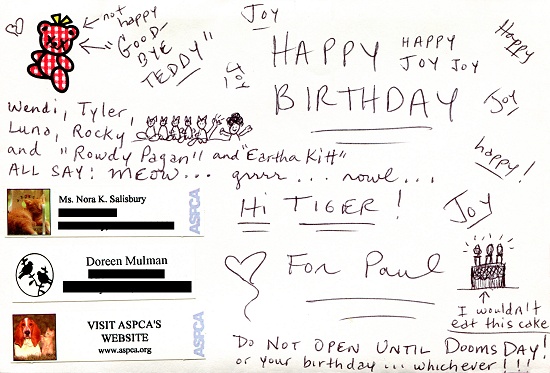 not
happy
"GOOD
BYE
TEDDY"
Wendi, Tyler,
Luna, Rocky
and "Rowdy Pagan" and "Eartha Kitt"
ALL SAY: MEOW... grrr... rowl...
Ms. Nora K. Salisbury
ASPCA
Doreen Mulman
VISIT ASPCA'S
WEBSITE
www.aspca.org
ASPCA
JOY
JOY
HAPPY
BIRTHDAY
HAPPY
JOY JOY
Happy
JOY
happy!
Hi TIGER!
JOY
For Paul
I wouldn't
eat this cake
DO NOT OPEN UNTIL DOOMS DAY!
or your birthday... whichever!!!